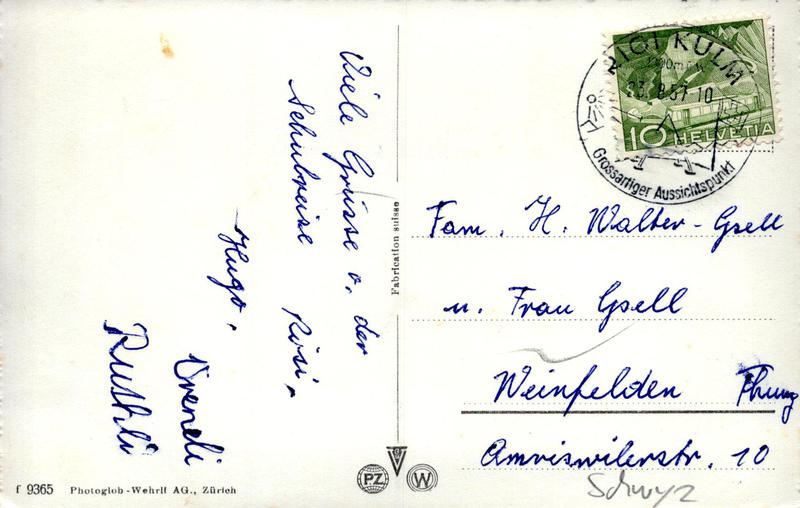 Viele Grüsse v. der
Schulreise Rösi,
Hugo,
Vreneli
Ruthli
Fabrication suisse
RIGI KULM
1800m ü.M.
23.8.57-10
Grossartiger Aussichtspunkt
10 HELVETIA
Fam. H. Walter-Gsell
u. Frau Gsell
Weinfelden Thurg
Amriswilerstr. 10
Schwyz
f 9365 Photoglob-Wehrli AG., Zürich
PZ W